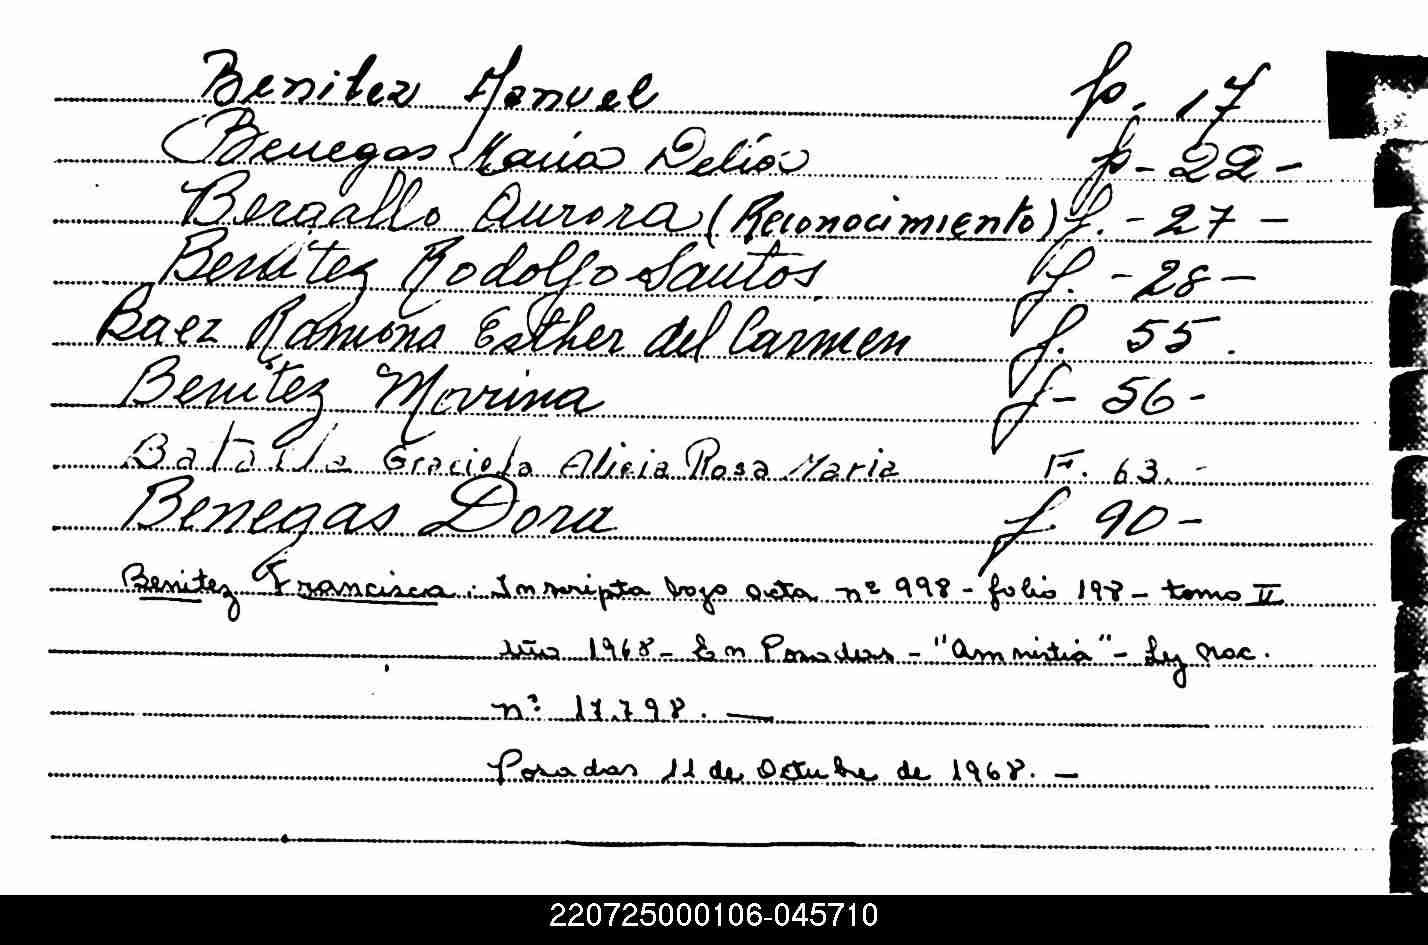 Benitez Manuel f. 17
Benegas Maria Delia f - 22 -
Bergallo Aurora (Reconocimiento) f. - 27 -
Benitez Rodolfo Santos f. - 28 -
Baez Ramona Esther del Carmen f. 55.
Benitez Morina f - 56 -
Batalla Graciela Alicia Rosa Maria F. 63. -
Benegas Dora f 90 -
Benitez Francisca: Inscripta bajo acta nº 998 - folio 198 - tomo II
año 1968 - En Posadas - "Amnistia" - Ley Nac.
nº 17.798. —
Posadas 11 de Octubre de 1968. -
220725000106-045710